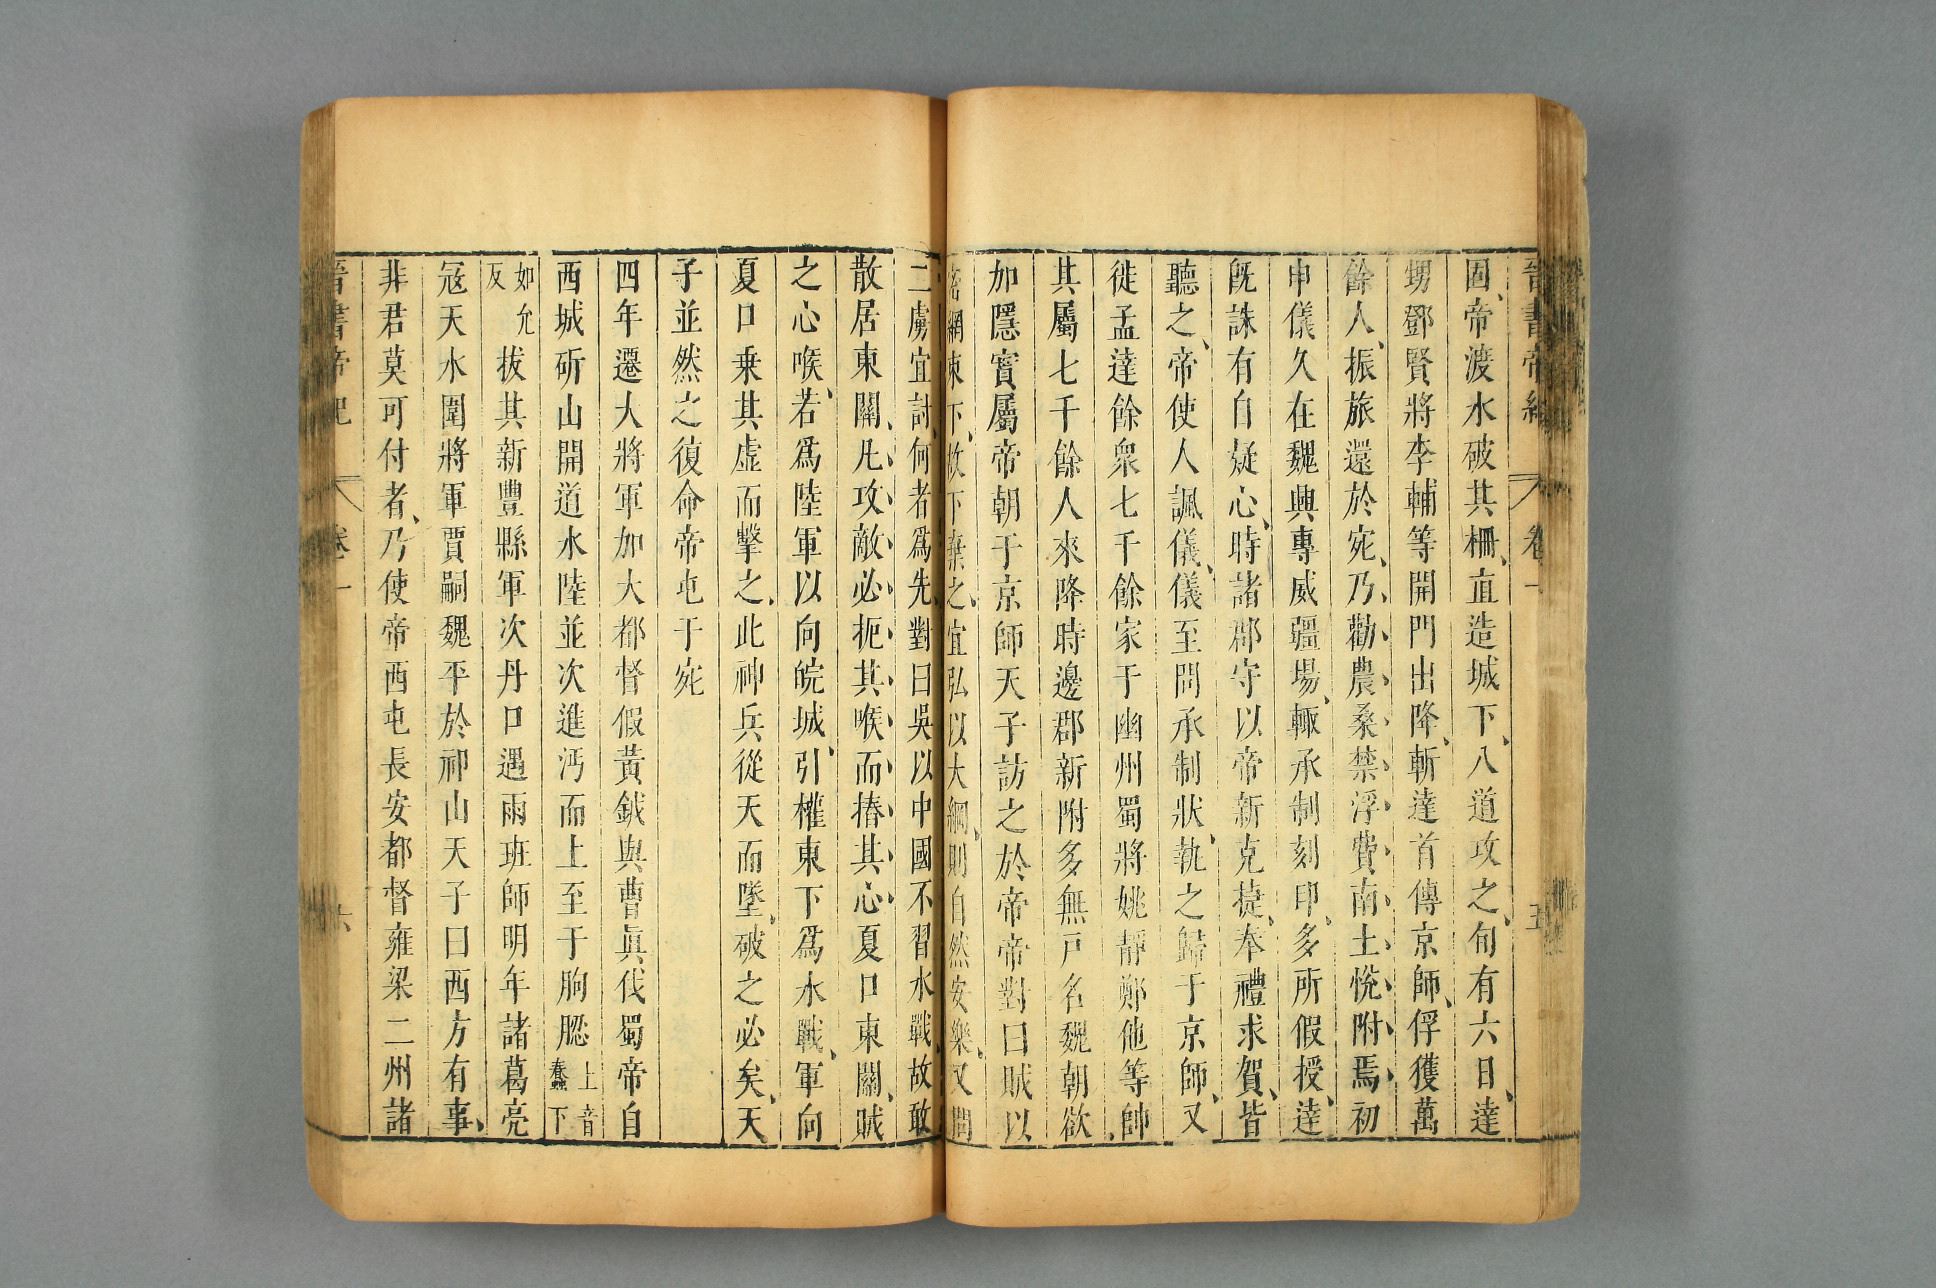 晉書帝紀 卷一 五
固、帝渡水破其柵、直造城下、八道攻之、旬有六日、達
甥鄧賢將李輔等開門出降、斬達首傳京師、俘獲萬
餘人、振旅還於宛、乃勸農桑禁浮費南土悅附焉初
申儀久在魏興專威疆場、輒承制刻印、多所假授、達
旣誅有自疑心、時諸郡守以帝新克捷、奉禮求賀、皆
聽之、帝使人諷儀、儀至問承制狀、執之歸于京師、又
徙孟達餘衆七千餘家于幽州蜀將姚靜鄭他等帥
其屬七千餘人來降時邊郡新附多無戸名魏朝欲
加隱實屬帝朝于京師天子訪之於帝帝對曰賊以
密網束下、故下棄之、宜弘以大綱、則自然安樂、又問
二虜宜討、何者爲先、對曰吳以中國不習水戰、故敢
散居東關、凡攻敵必扼其喉而摏其心夏口東關、賊
之心喉、若爲陸軍以向皖城、引權東下爲水戰、軍向
夏口乗其虛而擊之、此神兵從天而墜、破之必矣、天
子並然之復命帝屯于宛
四年遷大將軍加大都督假黃鉞與曹眞伐蜀帝自
西城斫山開道水陸並次進沔而上至于朐䏰上音蠢下
如允反拔其新豐縣軍次丹口遇雨班師明年諸葛亮
寇天水圍將軍賈嗣魏平於祁山天子曰西方有事、
非君莫可付者、乃使帝西屯長安都督雍梁二州諸
晉書帝紀 卷一 六